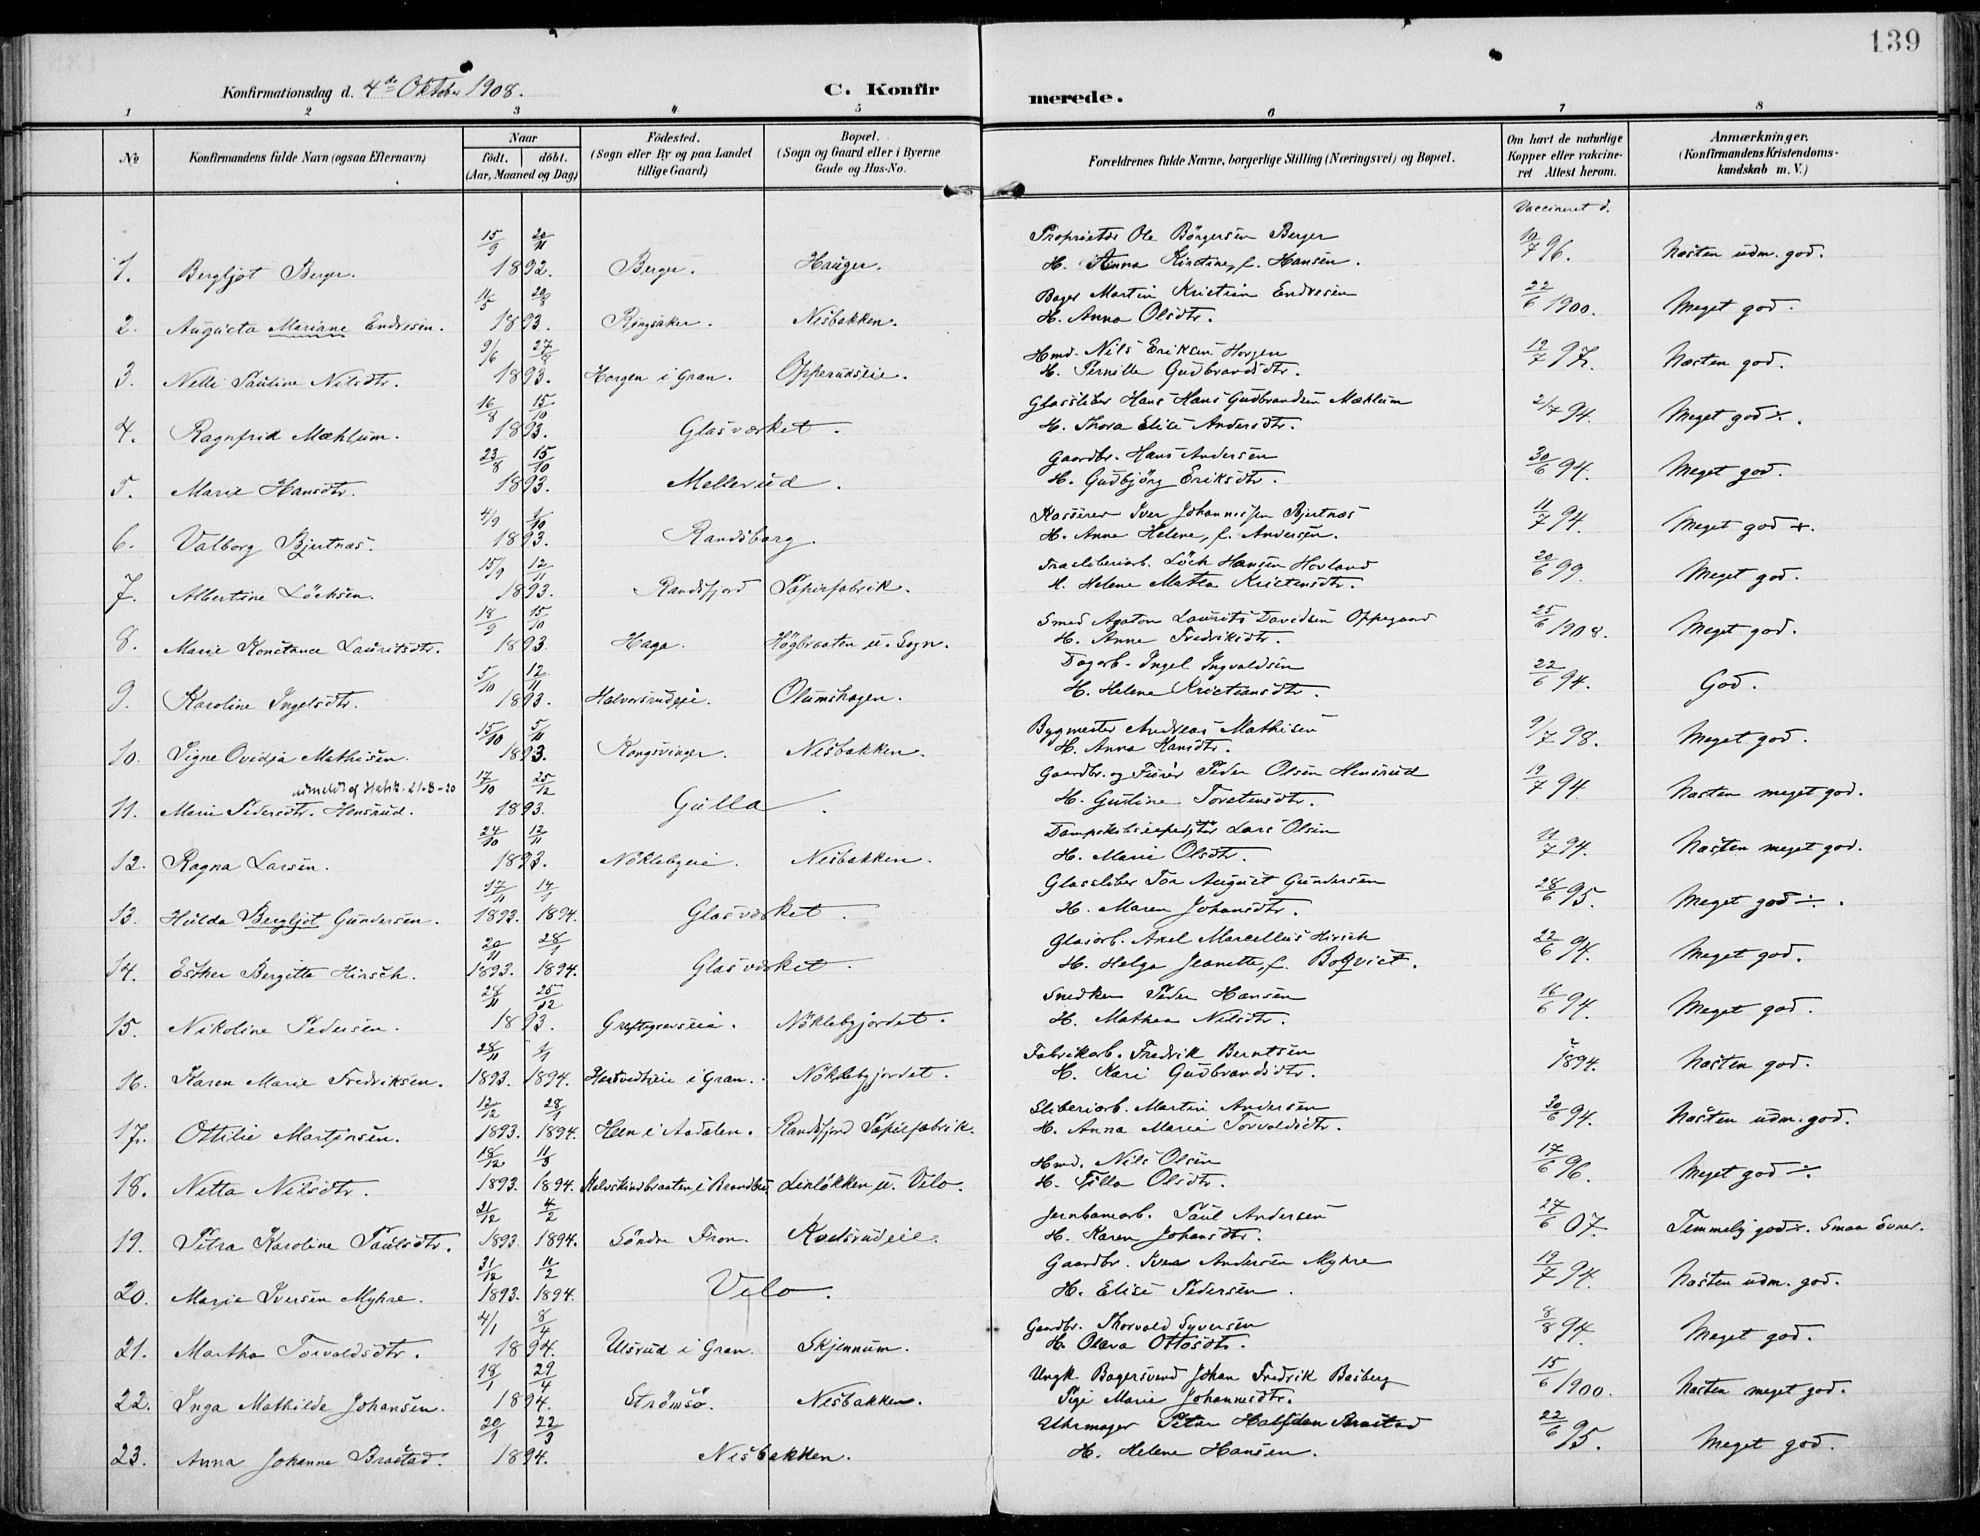 139
Konfirmationsdag d. 4de Oktober 1908.
C. Konfirmerede.
1 2 3 4 5 6 7 8
№
Konfirmandens fulde Navn (ogsaa Efternavn)
Naar
födt. döbt.
(Aar, Maaned og Dag)
Födested.
(Sogn eller By og paa Landet
tillige Gaard)
Bopæl.
(Sogn og Gaard eller i Byerne
Gade og Hus-No.
Forældrenes fulde Navne, borgerlige Stilling (Næringsvei) og Bopæl.
Om havt de naturlige
Kopper eller vakcine-
ret Attest herom.
Anmærkninger.
(Konfirmandens Kristendoms-
kundskab m. V.)
Vaccineret d.
15/9 20/11 Proprietær Ole Börgersen Berger
1. Bergljot Berger. 1892. Berger. Hauger. H. Anna Kirstine, f. Hansen. 10/7 96. Næsten udm. god.
11/5 20/8 Bager Martin Kristian Endresen
2. Augusta Mariane Endresen. 1893. Ringsaker. Nesbakken. H. Anna Olsdtr. 22/6 1900. Meget god.
9/6 27/8 Hmd. Nils Eriksen Horgen
3. Nelli Pauline Nilsdtr. 1893. Horgen i Gran. Opperudseie. H. Pernille Gudbrandsdtr. 12/7 97. Næsten god.
16/8 15/10 Glassliber Hans Hans Gudbrandsen Mæhlum
4. Ragnfrid Mæhlum. 1893. Glasværket. H. Thora Elise Andersdtr. 2/7 94. Meget god ÷.
23/8 15/10 Gaardbr. Hans Andersen
5. Marie Hansdtr. 1893. Mellerud. H. Gudbjörg Eriksdtr. 30/6 94. Meget god.
4/9 1/10 Kasserer Iver Johannessen Bjertnæs
6. Valborg Bjertnæs. 1893. Randsborg. H. Anne Helene, f. Andersen. 11/7 94. Meget god +.
15/9 12/11 Træsliberiarb. Löch Hansen Hovland
7. Albertine Löchsen. 1893. Randsfjord Papirfabrik. H. Helene Mathea Kristensdtr. 20/6 99. Meget god.
18/9 15/10 Smed Agaton Laurits Davidsen Oppegaard
8. Marie Konstance Lauritsdtr. 1893. Haga. Högbraaten u. Sogn. H. Anne Fredriksdtr. 25/6 1908. Meget god.
5/10 12/11 Dagarb. Ingel Ingvaldsen
9. Karoline Ingelsdtr. 1893. Halvorsrudeie. Olumshagen. H. Helene Kristiansdtr. 22/6 94. God.
15/10 5/11 Bygmester Andreas Mathisen
10. Signe Ovidia Mathisen. 1893. Kongsvinger. Nesbakken. H. Anna Hansdtr. 9/7 98. Meget god.
udmeldt af Statsk. 21-8-20 17/10 25/12 Gaardbr. og Furér Peder Olsen Hensrud
11. Marie Pedersdtr. Hensrud. 1893. Gulla. H. Gustine Torstensdtr. 19/7 94. Næsten meget god.
24/10 12/11 Dampskibsexpeditör Lars Olsen
12. Ragna Larsen. 1893. Nöklebyeie. Nesbakken. H. Marie Olsdtr. 11/7 94. Næsten meget god.
17/11 14/1 Glassliber Tor August Gundersen
13. Hulda Bergljot Gundersen. 1893. 1894. Glasværket. H. Maren Johansdtr. 28/6 95. Meget god ÷.
20/11 28/1 Glasarb. Axel Marcellius Hirsch
14. Esther Bergitte Hirsch. 1893. 1894. Glasværket. H. Helga Jeanette, f. Boqvist. 22/6 94. Meget god.
28/11 25/12 Snedker Peder Hansen
15. Nikoline Pedersen. 1893. Greftegrevseie. Nöklebyjordet. H. Mathea Nilsdtr. 16/6 94. Meget god.
28/11 1/1 Fabrikarb. Fredrik Berntsen
16. Karen Marie Fredriksen. 1893. 1894. Hastvedteie i Gran. Nöklebyjordet. H. Kari Gudbrandsdtr. 1894. Næsten god.
12/12 28/1 Sliberiarb. Martin Andersen
17. Ottilie Martinsen. 1893. 1894. Heen i Aadalen. Randsfjord Papirfabrik. H. Anna Marie Torvaldsdtr. 30/6 94. Næsten udm. god.
18/12 11/3 Hmd. Nils Olsen
18. Netta Nilsdtr. 1893. 1894. Kalvskindbraaten i Brandbu. Linløkken u. Velo. H. Pilla Olsdtr. 17/6 96. Meget god ÷.
21/12 4/2 Jernbanearb. Paul Andersen
19. Petra Karoline Paulsdtr. 1893 1894. Söndre Fron. Kvelsrudeie. H. Karen Johansdtr. 27/6 07. Temmelig god. Smaa Evner.
31/12 11/2 Gaardbr. Iver Andersen Myhre
20. Marie Iversen Myhre. 1893. 1894. Velo. H. Elise Pedersen. 19/7 94. Næsten udm. god.
4/1 8/4 Gaardbr. Thorvald Syversen
21. Martha Torvaldsdtr. 1894. Ulsrud i Gran. Skjennum. H. Olava Ottosdtr. 8/8 94. Meget god.
18/1 29/4 Ungk. Bagersvend Johan Fredrik Basberg
22. Inga Mathilde Johansen. 1894. Strömsö. Nesbakken. Pige Marie Johannesdtr. 15/6 1900. Næsten meget god.
20/1 22/3 Uhrmager Peter Halfdan Brastad
23. Anna Johanne Brastad. 1894. Nesbakken. H. Helene Hansen. 22/6 95. Meget god.